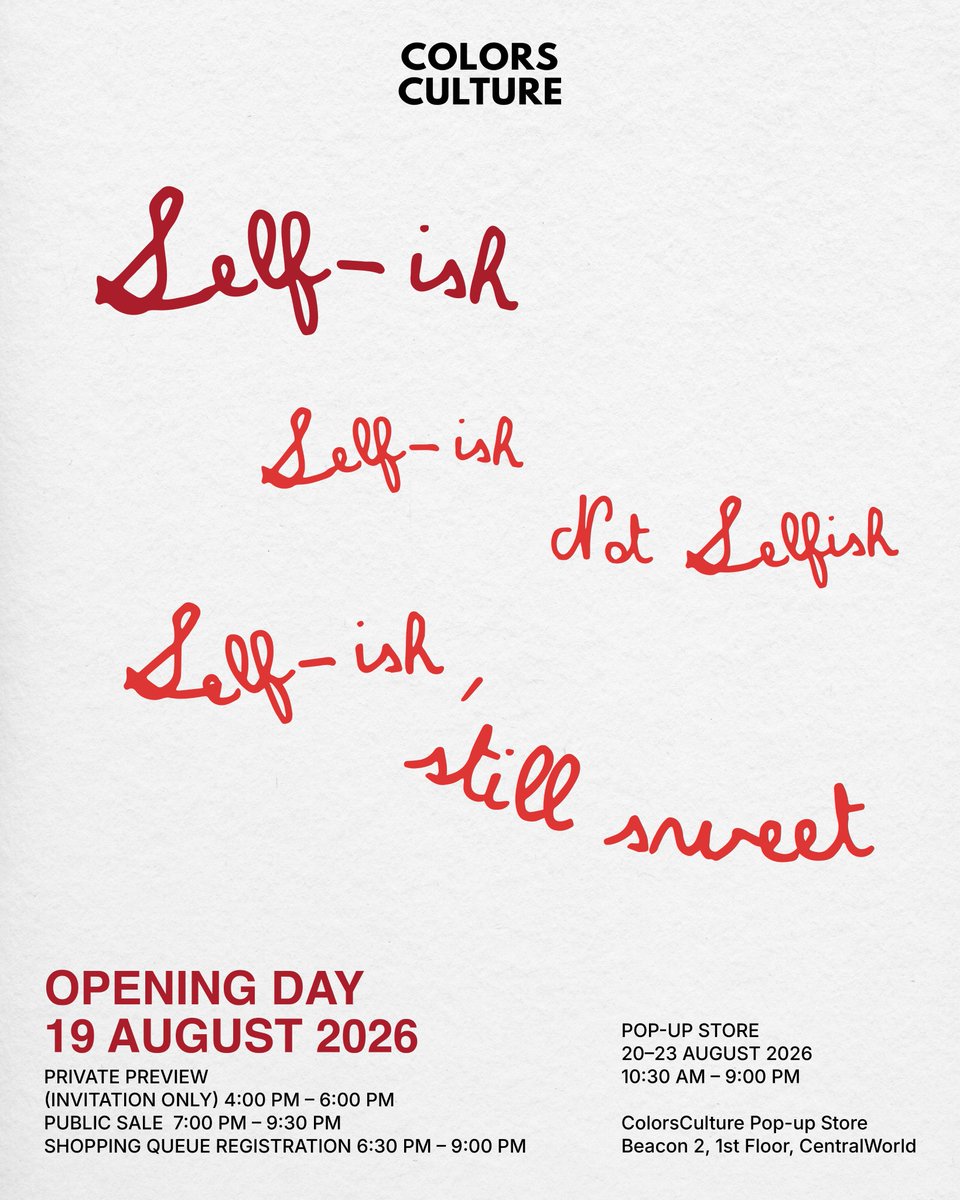 COLORS
CULTURE
Self-ish
Self-ish
Not Selfish
Self-ish,
still sweet
OPENING DAY
19 AUGUST 2026
PRIVATE PREVIEW
(INVITATION ONLY) 4:00 PM – 6:00 PM
PUBLIC SALE 7:00 PM – 9:30 PM
SHOPPING QUEUE REGISTRATION 6:30 PM – 9:00 PM
POP-UP STORE
20–23 AUGUST 2026
10:30 AM – 9:00 PM
ColorsCulture Pop-up Store
Beacon 2, 1st Floor, CentralWorld